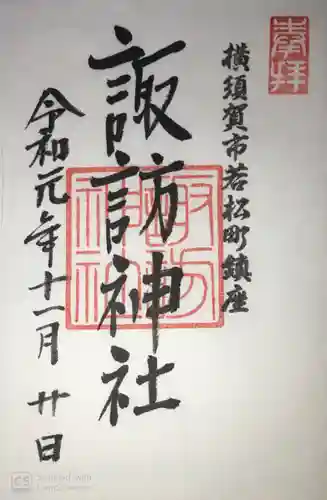 奉拝
横須賀市若松町鎮座
諏訪神社
諏訪神社
令和元年十一月廿日
CS Scanned with CamScanner